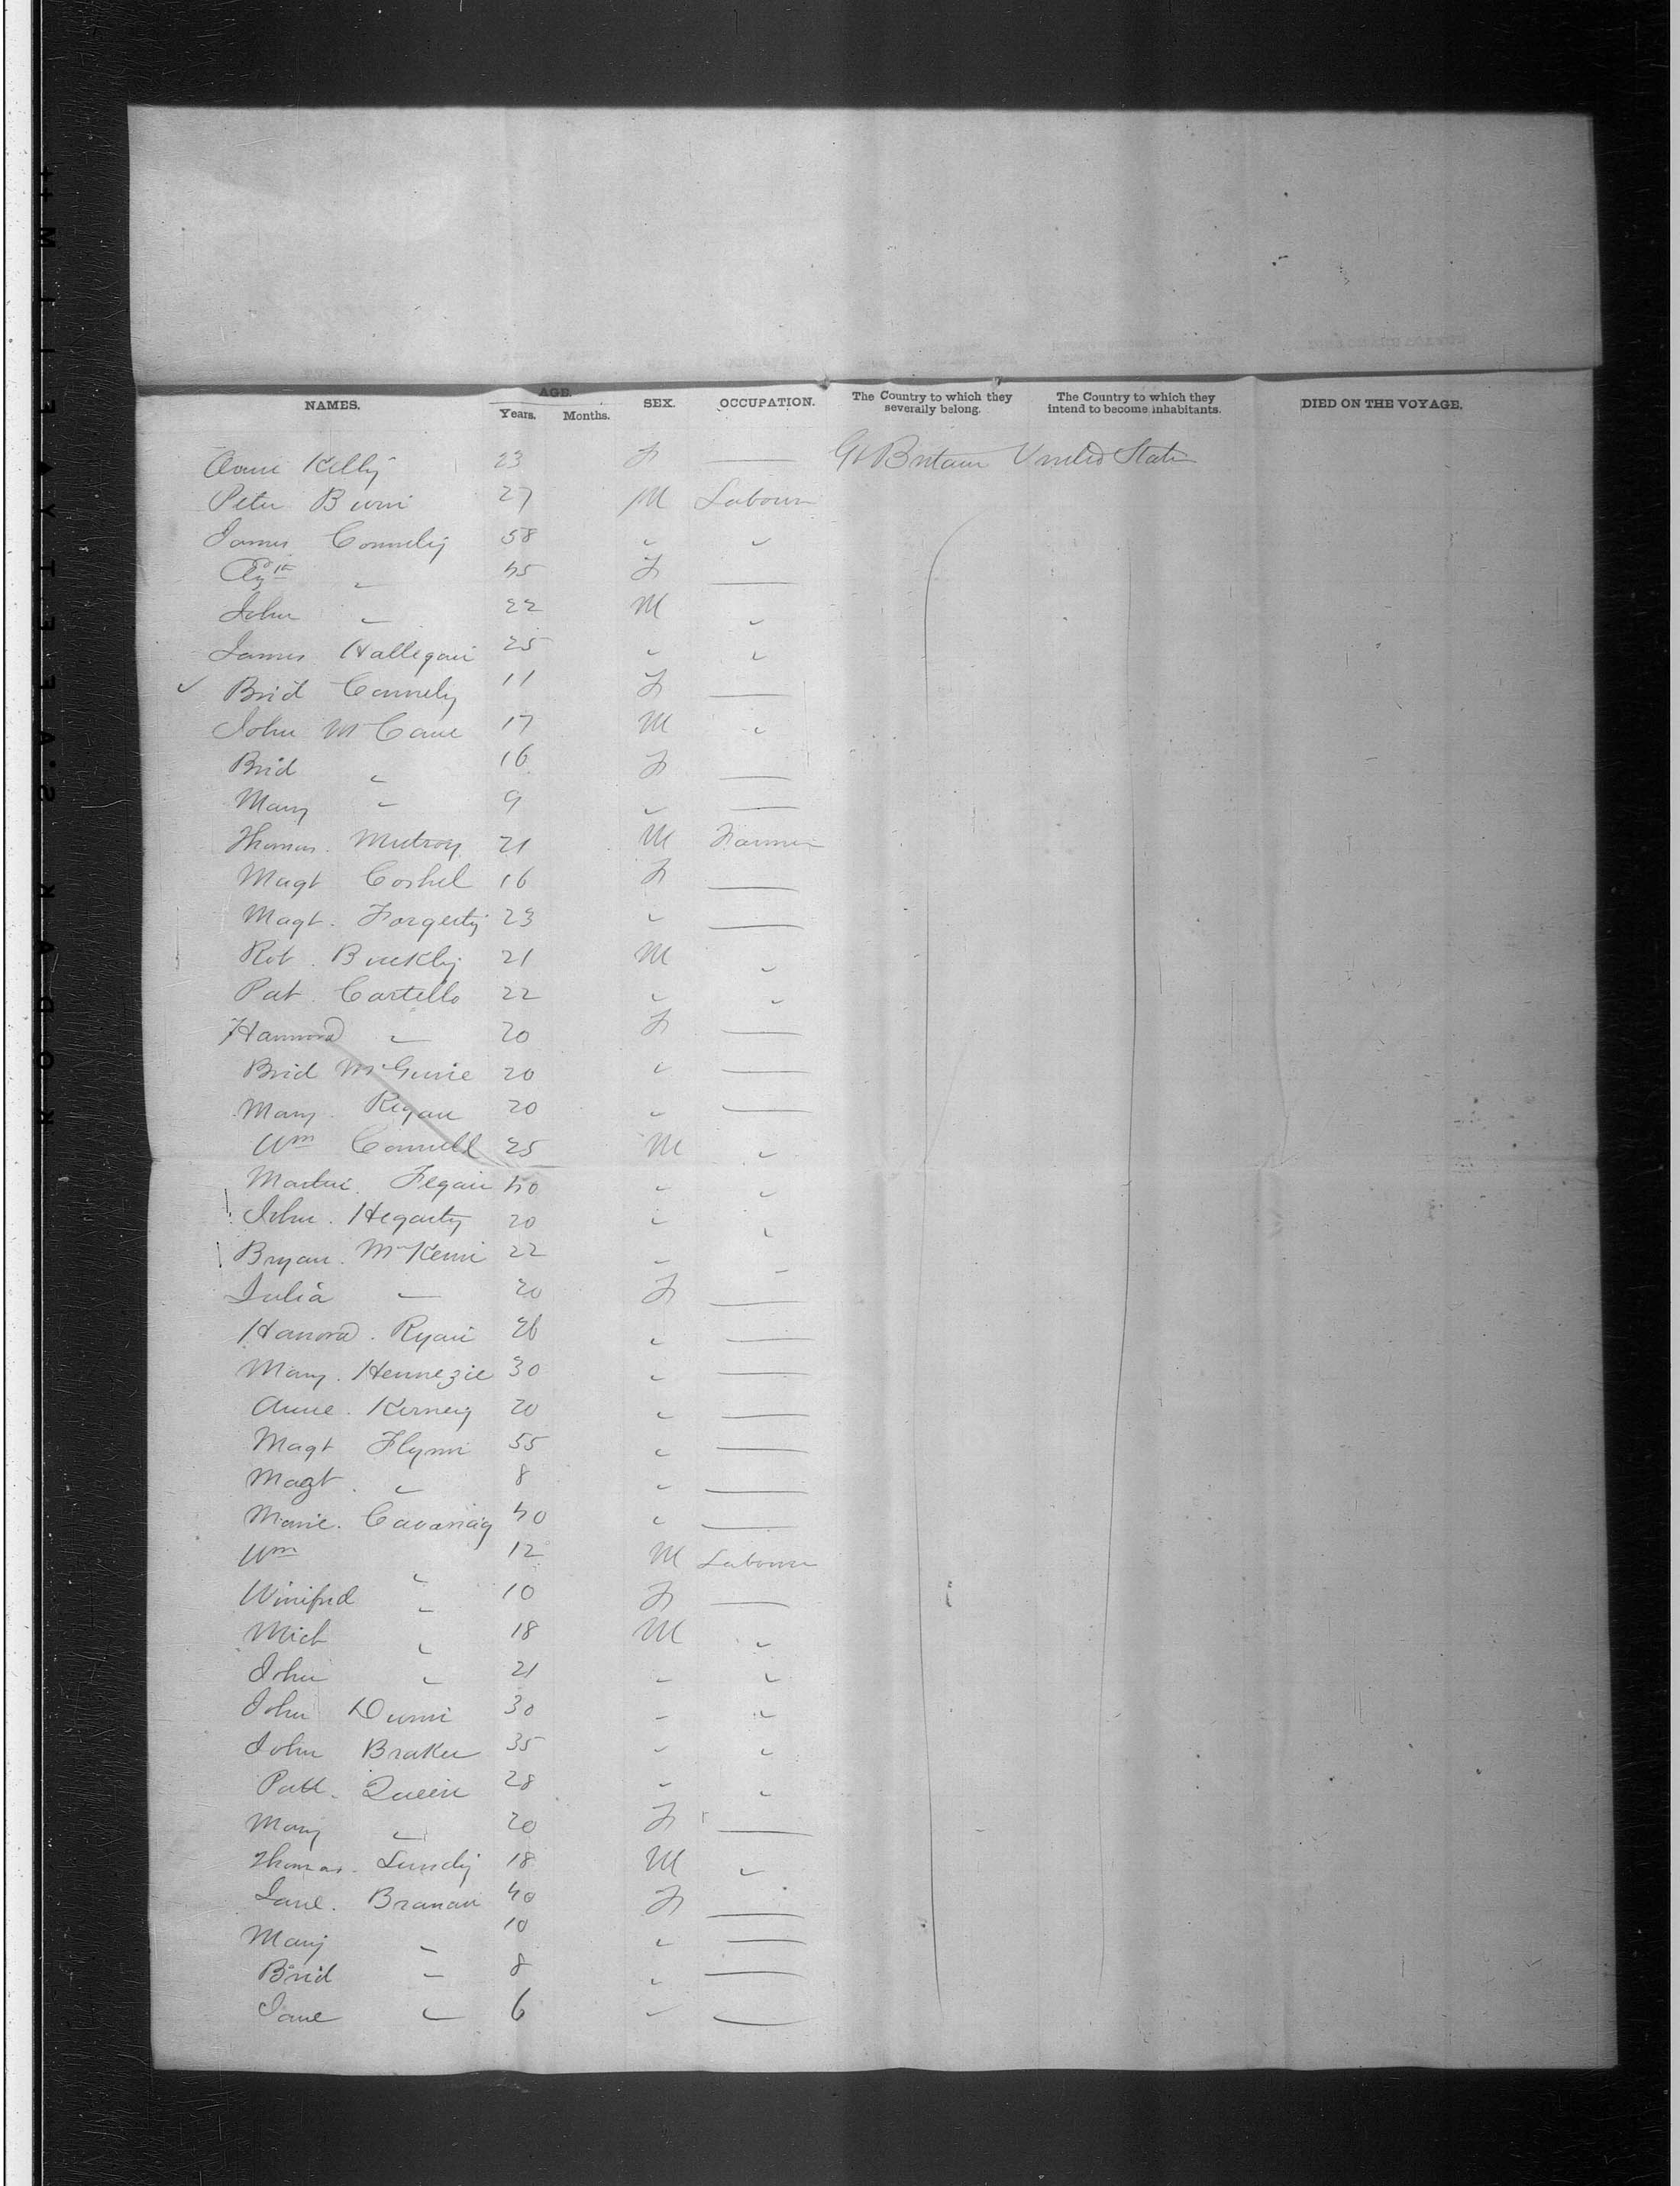 NAMES. AGE. Years. Months. SEX. OCCUPATION. The Country to which they severally belong. The Country to which they intend to become inhabitants. DIED ON THE VOYAGE.
Anne Kelly 23 F — Gt Britain United States
Peter Burn 27 M Labourer
James Connelly 58 " "
Elizth " 45 F —
John " 22 M "
James Hallegan 25 " "
Brid Connely 11 F —
John McCane 17 M "
Brid " 16 F —
Mary " 9 " —
Thomas Mulroy 21 M Farmer
Magt Coshel 16 F —
Magt. Forgerty 23 " —
Rob. Buckly 21 M "
Pat. Cartello 22 " "
Hannora " 20 F —
Brid McGuire 20 " —
Mary Regan 20 " —
Wm Connell 25 M "
Martin Flegan 40 " "
John. Hegarty 20 " "
Bryan. McKenn 22 " "
Julia " 20 F —
Hanora. Ryan 26 " —
Mary. Hennezie 30 " —
Anne. Kerney 20 " —
Magt Flynn 55 " —
Magt. " 8 " —
Marie. Cavanag 40 " —
Wm " 12 M Labourer
Winifred " 10 F —
Mich " 18 M "
John " 21 " "
John Dunn 30 " "
John Braken 35 " "
Patt. Queen 28 " "
Mary " 20 F —
Thomas. Lundy 18 M "
Jane. Branan 40 F —
Mary " 10 " —
Brid " 8 " —
Jane " 6 " —